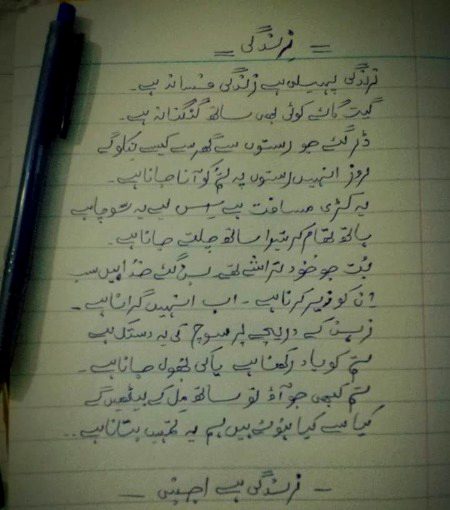 = زندگی =
زندگی پہیلی ہے زندگی فسانہ ہے۔
گیت گائے کوئی بھی ساتھ گنگنانا ہے۔
ڈر گئے جو رستوں سے گھر سے کیسے نکلو گے
روز انہیں رستوں پہ تم کو آنا جانا ہے۔
یہ کڑی مسافت ہے بس یہ سوچا ہے
ہاتھ تھام کر تیرا ساتھ چلتے جانا ہے۔
بُت جو خود تراشے تھے بن گئے خدا ہیں سب
ان کو زیر کرنا ہے ۔ اب انہیں گرانا ہے ۔
ذہن کے دریچے پر سوچ کی یہ دستک ہے
تم کو یاد رکھنا ہے یا کہ بھول جانا ہے ۔
تم کبھی جو آؤ تو ساتھ مل کے بیٹھیں گے
کیا سے کیا ہوئے ہیں ہم یہ تمہیں بتانا ہے ...
- زندگی ہے اجنبی -